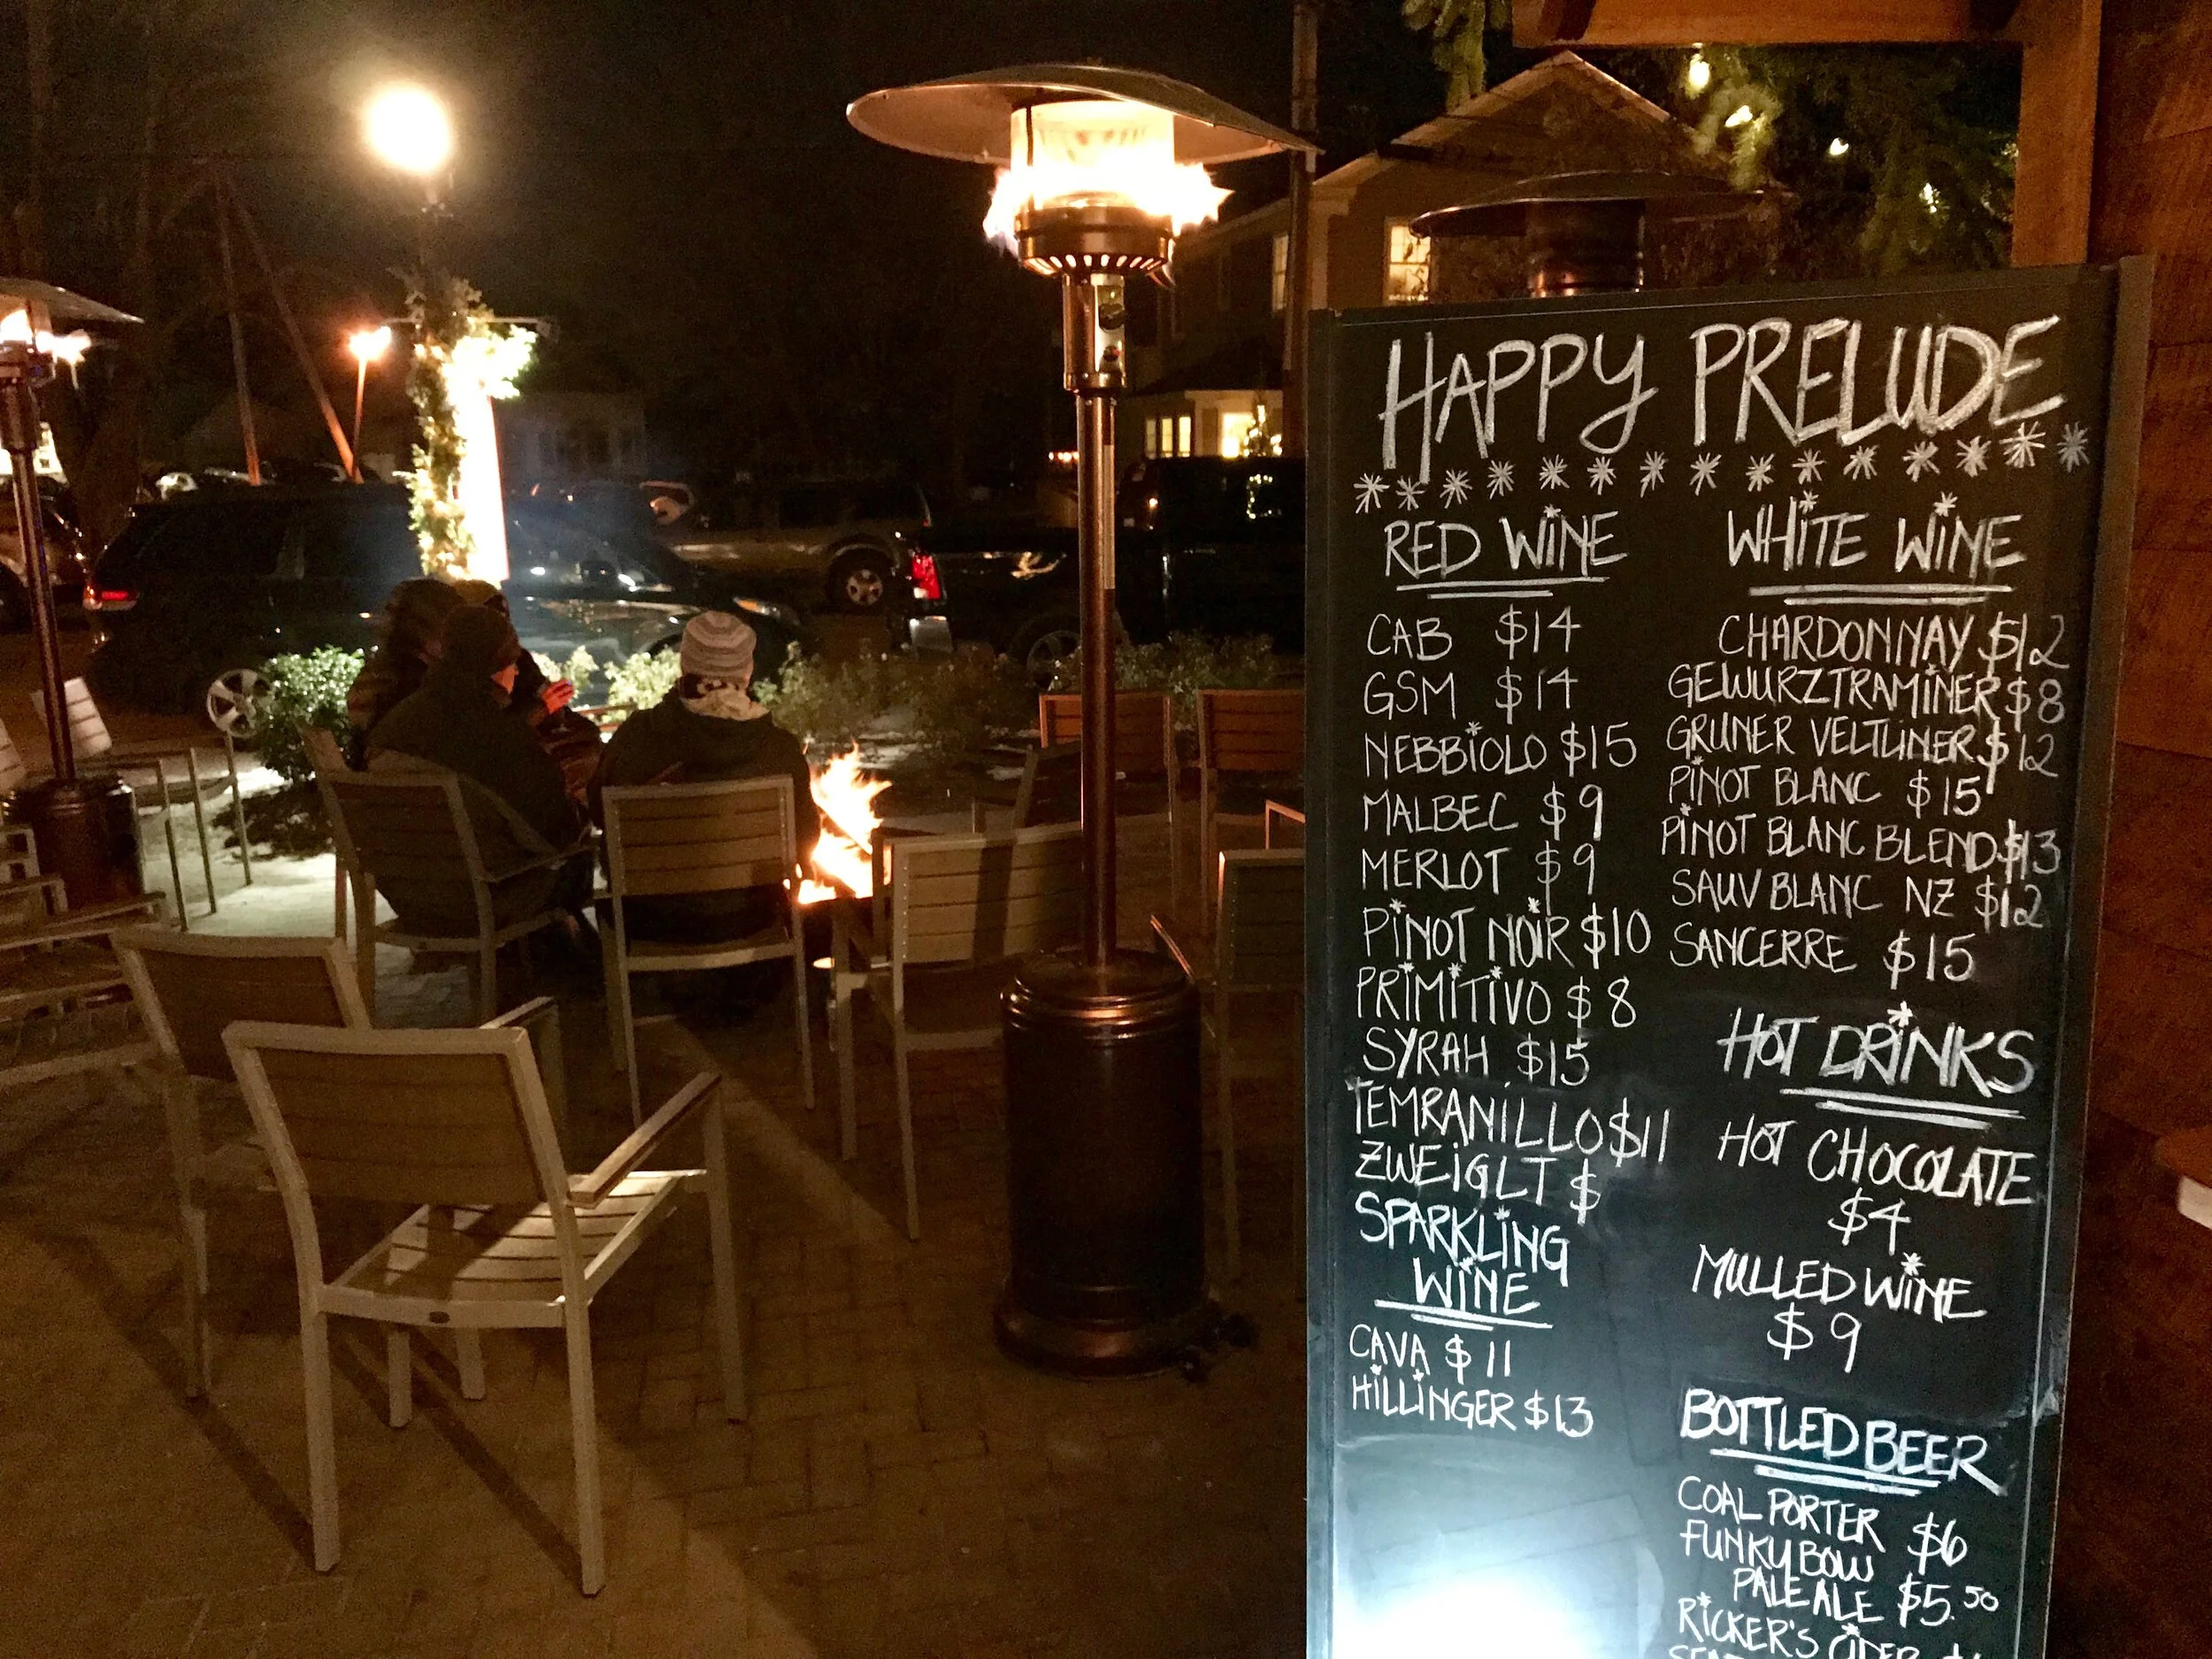 HAPPY PRELUDE
RED WINE
CAB $14
GSM $14
NEBBIOLO $15
MALBEC $9
MERLOT $9
PINOT NOIR $10
PRIMITIVO $8
SYRAH $15
TEMRANILLO $11
ZWEIGLT $
SPARKLING
WINE
CAVA $11
HILLINGER $13
WHITE WINE
CHARDONNAY $12
GEWURZTRAMINER $8
GRUNER VELTLINER $12
PINOT BLANC $15
PINOT BLANC BLEND $13
SAUV BLANC NZ $12
SANCERRE $15
HOT DRINKS
HOT CHOCOLATE
$4
MULLED WINE
$9
BOTTLED BEER
COAL PORTER $6
FUNKY BOW
PALE ALE $5.50
RICKER'S CIDER